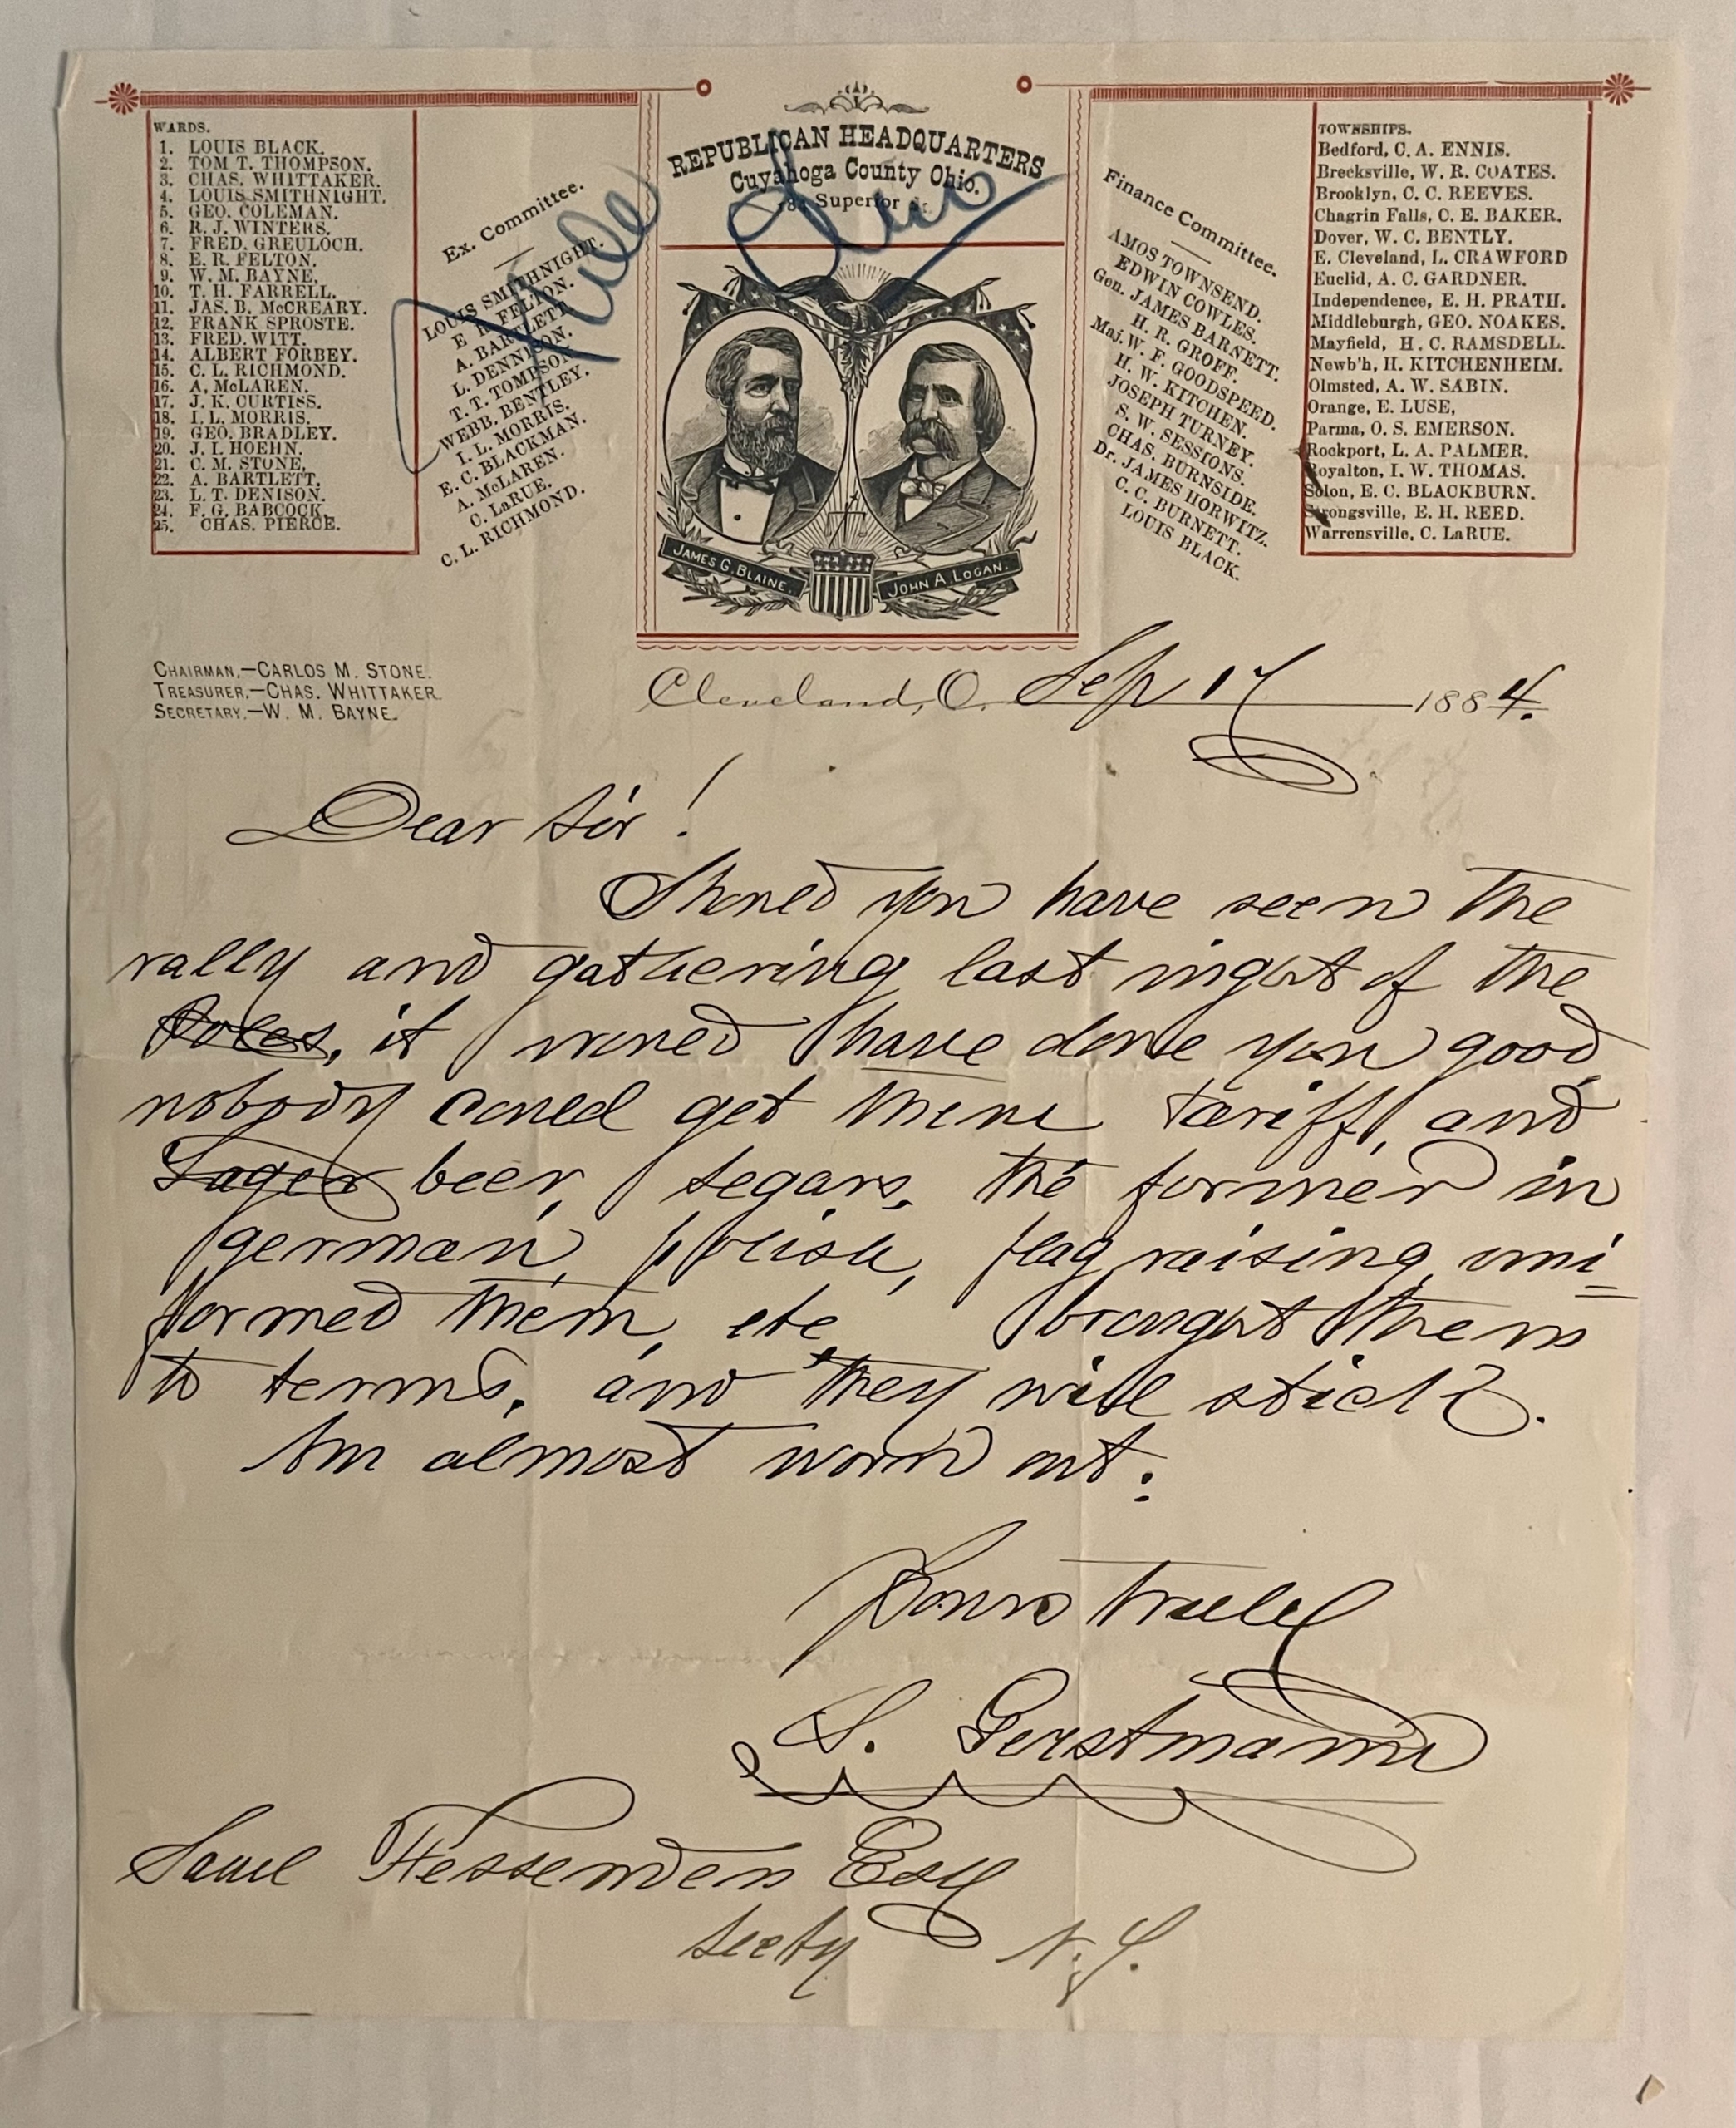 WARDS.
1. LOUIS BLACK.
2. TOM T. THOMPSON.
3. CHAS. WHITTAKER.
4. LOUIS SMITHNIGHT.
5. GEO. COLEMAN.
6. R. J. WINTERS.
7. FRED. GREULOCH.
8. E. R. FELTON.
9. W. M. BAYNE,
10. T. H. FARRELL.
11. JAS. B. McCREARY.
12. FRANK SPROSTE.
13. FRED. WITT.
14. ALBERT FORBEY.
15. C. L. RICHMOND.
16. A. McLAREN.
17. J. K. CURTISS.
18. I. L. MORRIS.
19. GEO. BRADLEY.
20. J. I. HOEHN.
21. C. M. STONE,
22. A. BARTLETT,
23. L. T. DENISON.
24. F. G. BABCOCK.
25. CHAS. PIERCE.
Ex. Committee.
LOUIS SMITHNIGHT.
E. R. FELTON.
A. BARTLETT.
L. DENNISON.
T. T. TOMPSON.
WEBB. BENTLEY.
I. L. MORRIS.
E. C. BLACKMAN.
A. McLAREN.
C. LaRUE.
C. L. RICHMOND.
File
Ohio
REPUBLICAN HEADQUARTERS
Cuyahoga County Ohio.
Superior St.
JAMES G. BLAINE.
JOHN A. LOGAN.
Finance Committee.
AMOS TOWNSEND.
EDWIN COWLES.
Gen. JAMES BARNETT.
H. R. GROFF.
Maj. W. F. GOODSPEED.
H. W. KITCHEN.
JOSEPH TURNEY.
S. W. SESSIONS.
CHAS. BURNSIDE.
Dr. JAMES HORWITZ.
C. C. BURNETT.
LOUIS BLACK.
TOWNSHIPS.
Bedford, C. A. ENNIS.
Brecksville, W. R. COATES.
Brooklyn, C. C. REEVES.
Chagrin Falls, C. E. BAKER.
Dover, W. C. BENTLY.
E. Cleveland, L. CRAWFORD
Euclid, A. C. GARDNER.
Independence, E. H. PRATH.
Middleburgh, GEO. NOAKES.
Mayfield, H. C. RAMSDELL.
Newb'h, H. KITCHENHEIM.
Olmsted, A. W. SABIN.
Orange, E. LUSE,
Parma, O. S. EMERSON.
Rockport, L. A. PALMER.
Royalton, I. W. THOMAS.
Solon, E. C. BLACKBURN.
Strongsville, E. H. REED.
Warrensville, C. LaRUE.
CHAIRMAN,—CARLOS M. STONE.
TREASURER,—CHAS. WHITTAKER.
SECRETARY,—W. M. BAYNE.
Cleveland, O. Sep 17 1884.
Dear Sir!
Shoued you have seen the
rally and gathering last night of the
Poles, it woued have done you good
nobody coued get them tariff, and
Lager beer, segars, the former in
german, polish, flag raising, uni=
formed them, etc, brought them
to terms, and they will stick.
Am almost worn out.
Yours truely
S. Gerstmann
Saml Fessenden Esq
Secty N.Y.